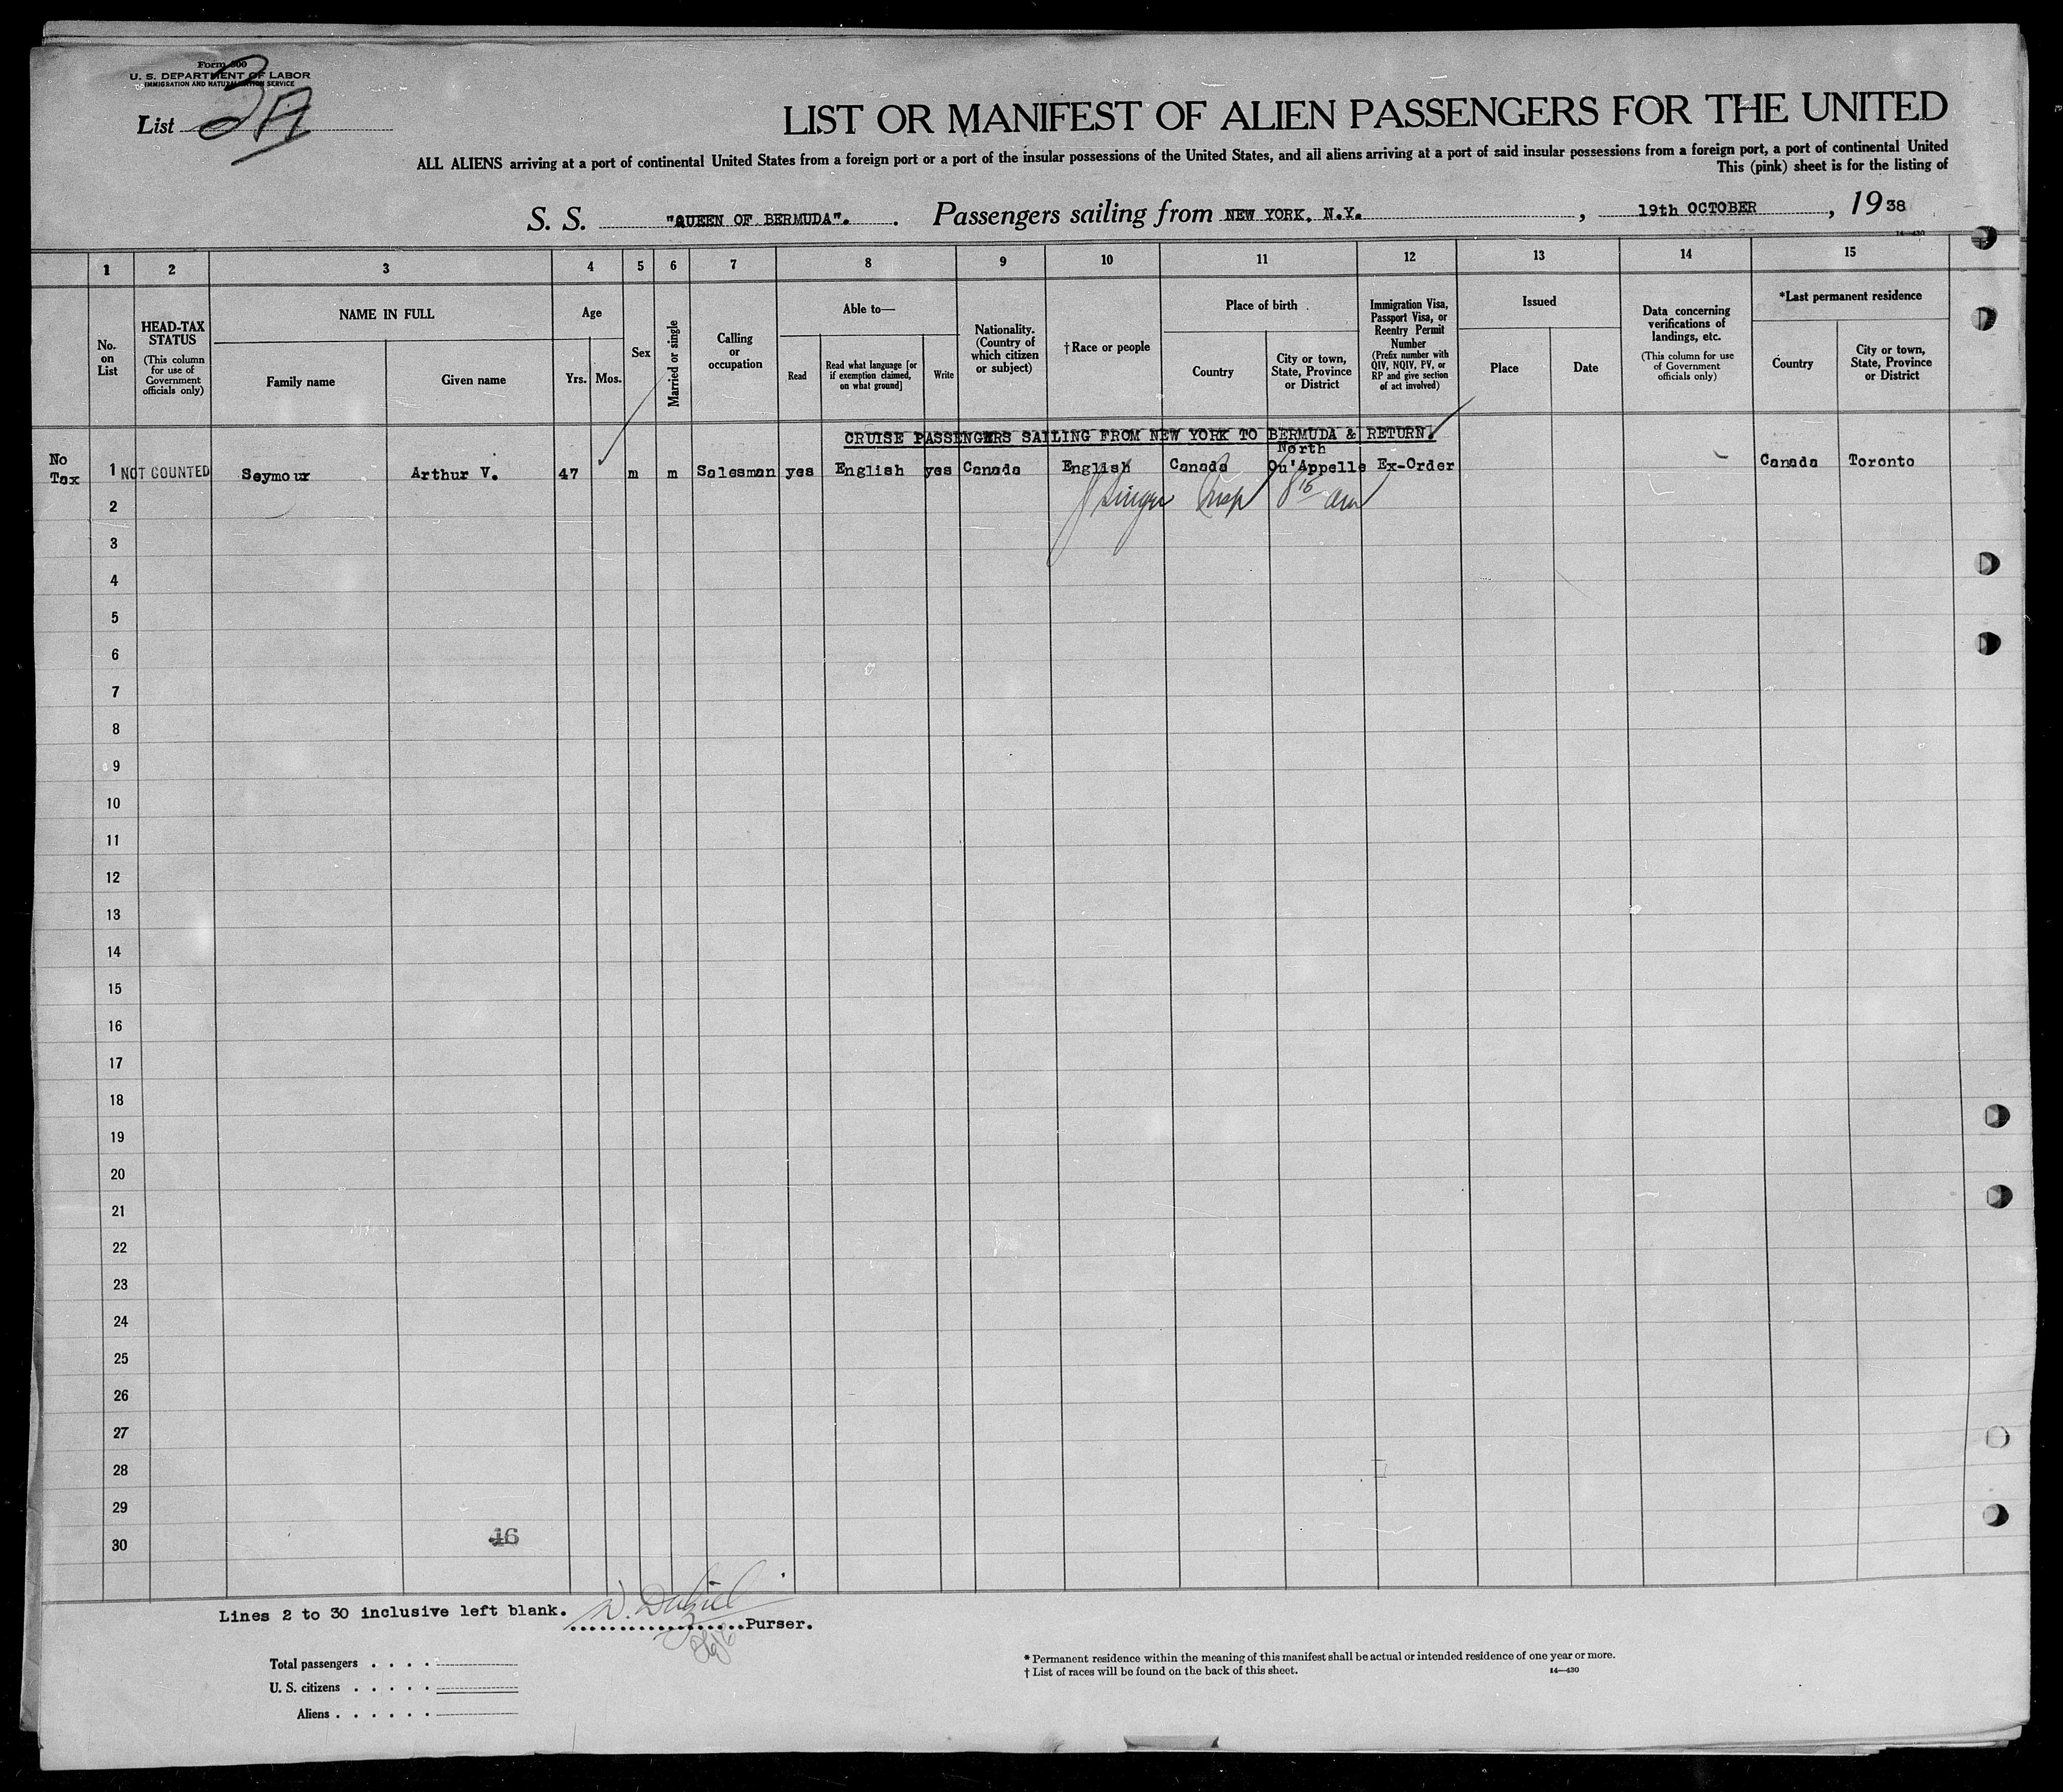 Form 500
U. S. DEPARTMENT OF LABOR
IMMIGRATION AND NATURALIZATION SERVICE
List 2A
LIST OR MANIFEST OF ALIEN PASSENGERS FOR THE UNITED
ALL ALIENS arriving at a port of continental United States from a foreign port or a port of the insular possessions of the United States, and all aliens arriving at a port of said insular possessions from a foreign port, a port of continental United
This (pink) sheet is for the listing of
S. S. "QUEEN OF BERMUDA". Passengers sailing from NEW YORK, N.Y. , 19th OCTOBER , 1938
14—430
1 2 3 4 5 6 7 8 9 10 11 12 13 14 15
No. on List
HEAD-TAX STATUS
(This column for use of Government officials only)
NAME IN FULL
Family name
Given name
Age
Yrs. Mos.
Sex
Married or single
Calling or occupation
Able to—
Read
Read what language [or if exemption claimed, on what ground]
Write
Nationality. (Country of which citizen or subject)
†Race or people
Place of birth
Country
City or town, State, Province or District
Immigration Visa, Passport Visa, or Reentry Permit Number
(Prefix number with QIV, NQIV, PV, or RP and give section of act involved)
Issued
Place
Date
Data concerning verifications of landings, etc.
(This column for use of Government officials only)
*Last permanent residence
Country
City or town, State, Province or District
CRUISE PASSENGERS SAILING FROM NEW YORK TO BERMUDA & RETURN.
No Tax 1 NOT COUNTED Seymour Arthur V. 47 m m Salesman yes English yes Canada English Canada North Qu'Appelle Ex-Order Canada Toronto
2
3
4
5
6
7
8
9
10
11
12
13
14
15
16
17
18
19
20
21
22
23
24
25
26
27
28
29
30
16
Lines 2 to 30 inclusive left blank. Purser.
Total passengers
U. S. citizens
Aliens
* Permanent residence within the meaning of this manifest shall be actual or intended residence of one year or more.
† List of races will be found on the back of this sheet. 14—430